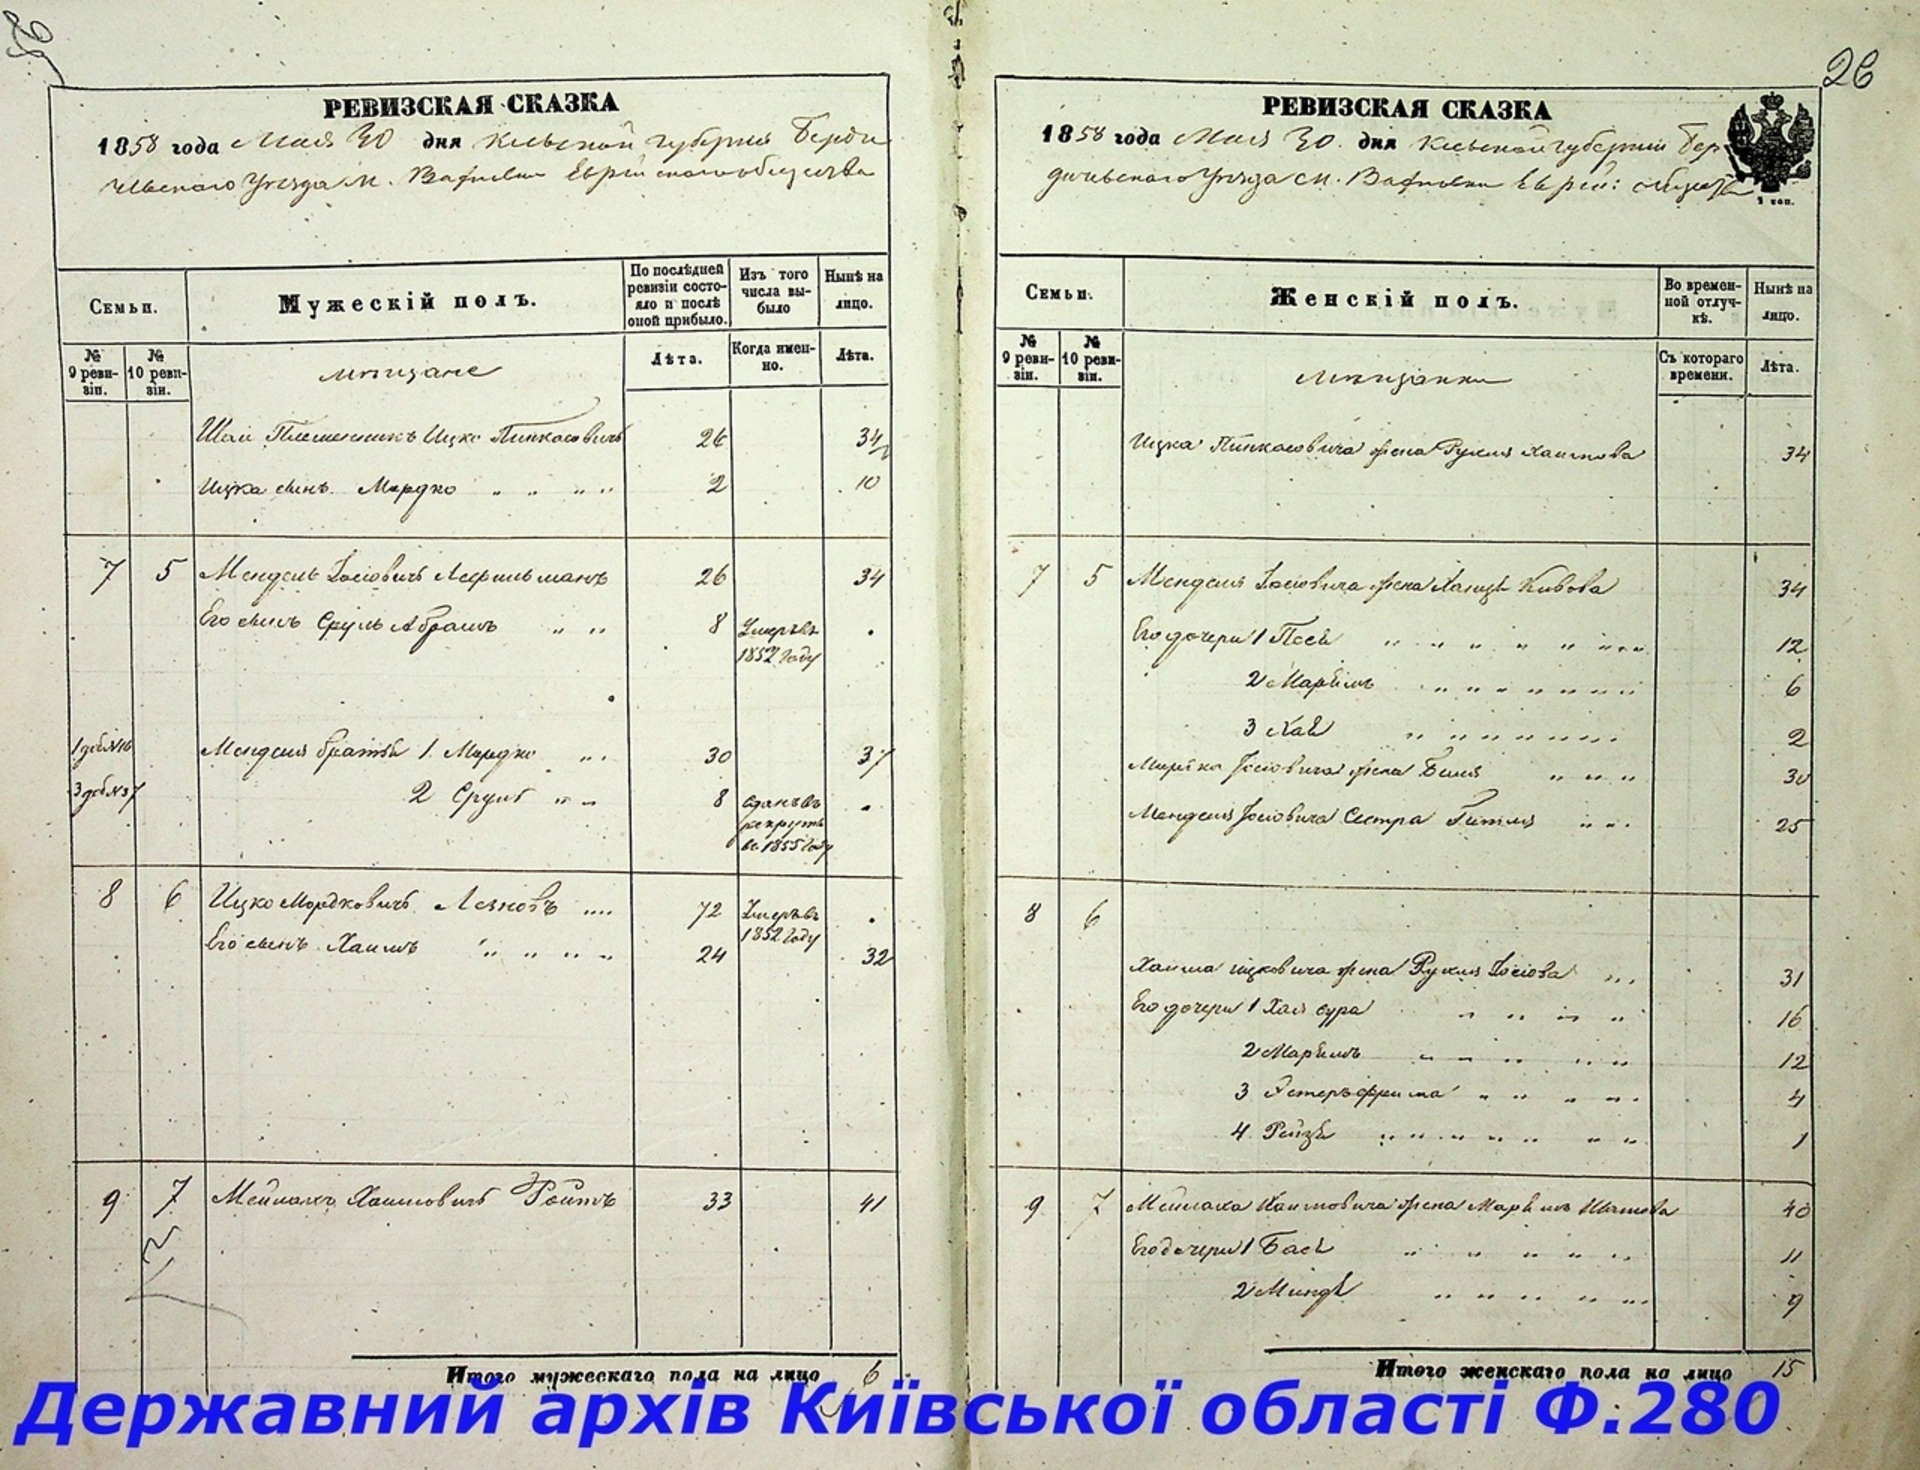 26
РЕВИЗСКАЯ СКАЗКА
1858 года Мая 30 дня Киевской губернии Берди
чевскаго Уезда м. Вахновки Еврейскаго общества
Семьи.
Мужескій полъ.
По послѣдней ревизіи состояло и послѣ оной прибыло.
Изъ того числа выбыло
Нынѣ на лицо.
№ 9 ревизіи.
№ 10 ревизіи.
мещане
Лѣта.
Когда именно.
Лѣта.
Шаи Племенникъ Ицко Пинкасовичъ 26 34
Ицка сынъ Мордко " " " " 2 10
7 5 Мендель Іосіовичъ 26 34
Его сынъ Сруль Абрамъ " " 8 Умеръ въ 1852 году
Менделя братья 1. Мордко " " 30 37
2 Сруль " " 8 сданъ въ рекруты въ 1855 году
8 6 Ицко Мордковичъ 72 Умеръ въ 1852 году
Его сынъ Хаимъ " " " " 24 32
9 7 Мейлахъ Хаимовичъ Ройтъ 33 41
Итого мужескаго пола на лицо 6
26
РЕВИЗСКАЯ СКАЗКА
1858 года Мая 30 дня Киевской губернии Бер
дичевскаго Уезда м. Вахновки Еврей: общества
Семьи.
Женскій полъ.
Во временной отлучкѣ.
Нынѣ на лицо.
№ 9 ревизіи.
№ 10 ревизіи.
мещанки
Съ котораго времени.
Лѣта.
Ицка Пинкасовича жена Рухля Хаимова 34
7 5 Менделя Іосіовича жена 34
Его дочери 1 Песя " " " " " " 12
2 Марьямъ " " " " " " 6
3 Хая " " " " " " 2
Мордка Іосіовича жена Бейля " " " 30
Менделя Іосіовича Сестра Гитля " " 25
8 6
Хаима Ицковича жена Рухля Іосіова 31
Его дочери 1 Хая сура " " " " 16
2 Марьямъ " " " " " 12
3 Эстеръ фрима " " " " 4
4 Рейзя " " " " " " 1
9 7 Мейлаха Хаимовича жена Марьямъ 40
Его дочери 1 Бася " " " " " 11
2 Миндя " " " " " 9
Итого женскаго пола на лицо 15
Державний архів Київської області Ф.280